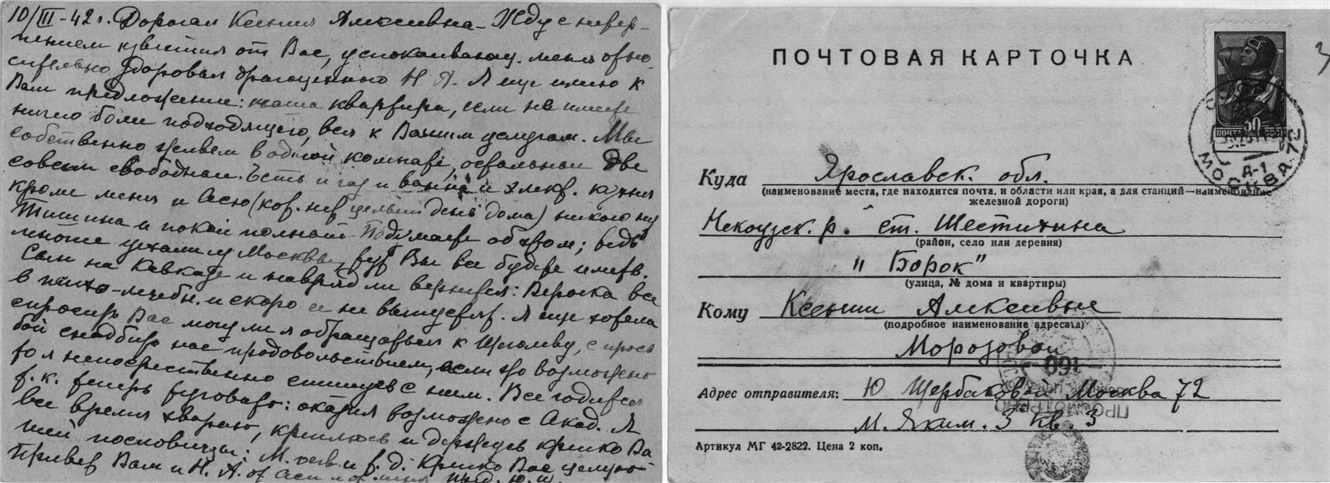 10/III-42 г. Дорогая Ксения Алексеевна. Жду с нетер-
пением известия от Вас, успокаивающ. меня относи-
тельно здоровья драгоценного Н. А. Я еще имею к
Вам предложение: наша квартира, если не имеете
ничего более подходящего, вся к Вашим услугам. Мы
собственно живем в одной комнате, остальные две
совсем свободные. Есть и газ и ванна и электр. кухня
кроме меня и Аси (кот. нет целый день дома) никого нет
Тишина и покой полный. Подумайте об этом; ведь
многие уехали из Москвы, тут Вы все будете иметь.
Сам на Кавказе и навряд ли вернется: Верочка все
в психо-лечебн. и скоро ее не выпустят. Я еще хотела
спросить Вас могу ли я обращаться к с прось-
бой снабдить нас продовольствием, если это возможно
то я непосредственно спишусь с ним. Все годится
т. к. теперь туговато: оказия возможна с Акад. Я
все время хвораю, креплюсь и держусь крепко Ва-
шей пословицы: М. и т. д. Крепко Вас целую
Привет Вам и Н. А. от Аси
ПОЧТОВАЯ КАРТОЧКА
ПОЧТА
МОСКВА-72
Куда Ярославск. обл.
(наименование места, где находится почта, и области или края, а для станций—наименование
железной дороги)
Некоузск. р. ст. Шестихина
(район, село или деревня)
"Борок"
(улица, № дома и квартиры)
Кому Ксении Алексеевне
(подробное наименование адресата)
Морозовой
Адрес отправителя: Ю Щербаковой Москва 72
М. Яким. 3 кв 3
Артикул МГ 42-2822. Цена 2 коп.